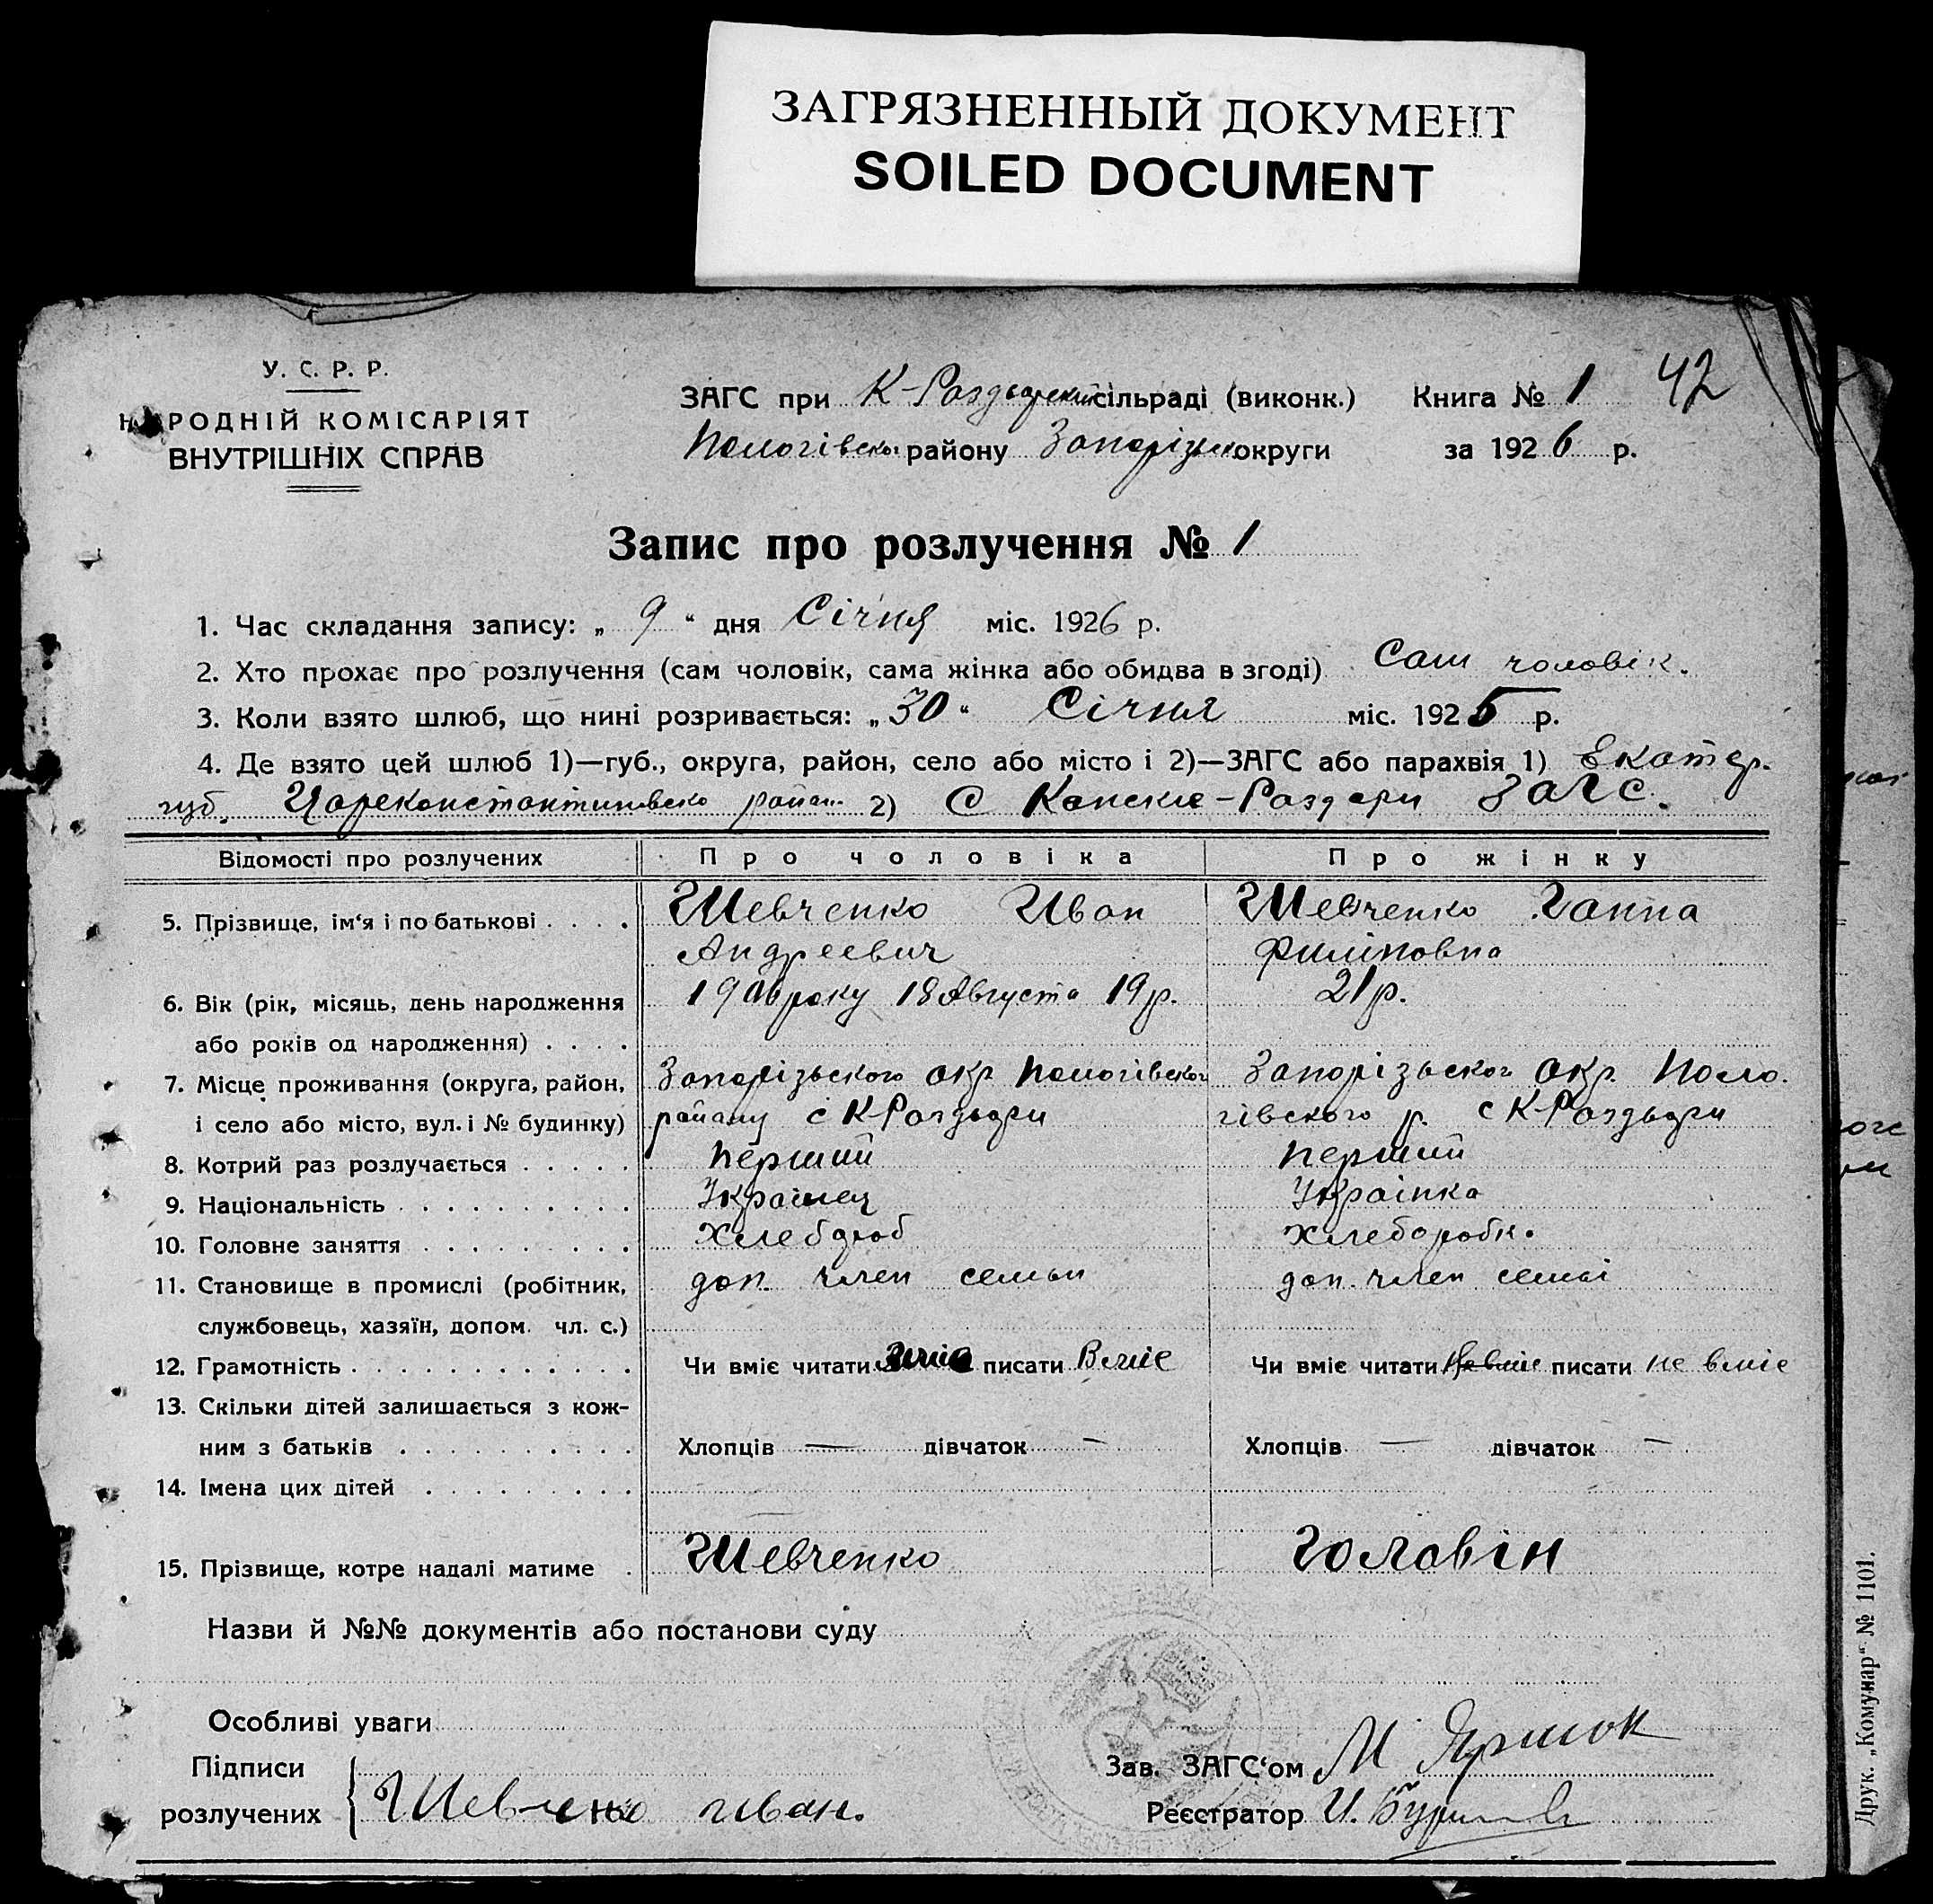 ЗАГРЯЗНЕННЫЙ ДОКУМЕНТ
SOILED DOCUMENT
У. С. Р. Р.
НАРОДНІЙ КОМІСАРІЯТ
ВНУТРІШНІХ СПРАВ
ЗАГС при К-Раздорській сільраді (виконк.) Книга № 1 42
Пологівсько району Запорізько округи за 1926 р.
Запис про розлучення № 1
1. Час складання запису: „ 9 “ дня Січня міс. 1926 р.
2. Хто прохає про розлучення (сам чоловік, сама жінка або обидва в згоді) Сам чоловік.
3. Коли взято шлюб, що нині розривається: „30“ Січня міс. 1925 р.
4. Де взято цей шлюб 1)—губ., округа, район, село або місто і 2)—ЗАГС або парахвія 1) Екатер.
губ. Цареконстантиновско район 2) С Конские-Раздоры ЗАГС.
Відомості про розлучених Про чоловіка Про жінку
5. Прізвище, ім‘я і по батькові . . . . Шевченко Иван Шевченко Ганна
Андреевич Филіповна
6. Вік (рік, місяць, день народження року 18 Августа 19 р. 21 р.
або років од народження) . . . .
7. Місце проживання (округа, район, Запорізьского окр Пологівского Запорізького окр. Поло.
і село або місто, вул. і № будинку) району с К-Раздоры гівского р. с К-Раздоры
8. Котрий раз розлучається . . . . . Перший Перший
9. Національність . . . . . . . . . . Українец Українка
10. Головне заняття . . . . . . . . . Хлебороб Хлеборобк.
11. Становище в промислі (робітник, доп. член семьи доп. член семьі
службовець, хазяїн, допом. чл. с.)
12. Грамотність . . . . . . . . . . . . Чи вміє читати писати Вміє Чи вміє читати Не вміє писати не вміє
13. Скільки дітей залишається з кож-
ним з батьків . . . . . . . . . . Хлопців — дівчаток — Хлопців — дівчаток —
14. Імена цих дітей . . . . . . . . .
15. Прізвище, котре надалі матиме . Шевченко Головін
Назви й №№ документів або постанови суду
Особливі уваги
Підписи Зав. ЗАГС‘ом М
розлучених Шевченко иван. Реєстратор И.
Друк. „Комунар“ № 1101.